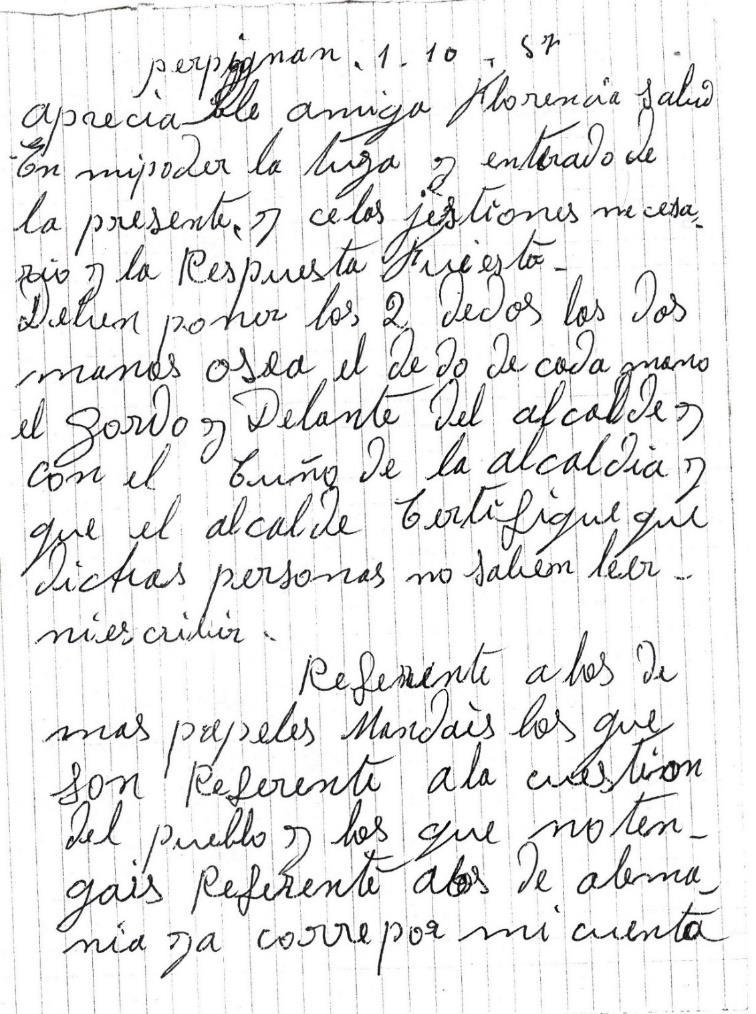 perpignan. 1. 10. 57
apreciable amiga Florencia Salud
En mipoder la tuya y enterado de
la presente, y ce las jestiones necesa-
rio y la Respuesta Fue esta-
Deben poner los 2 dedos las dos
manos osea el dedo de cada mano
el gordo y Delante del alcalde y
con el Cuño de la alcaldia y
que el alcalde Certifique que
dichas personas no saben leer-
niescribir.
Referente a los de
mas papeles Mandais los que
son Referente ala cuestion
del pueblo y los que noten-
gais Referente alos de alema-
nia ya corre por mi cuenta